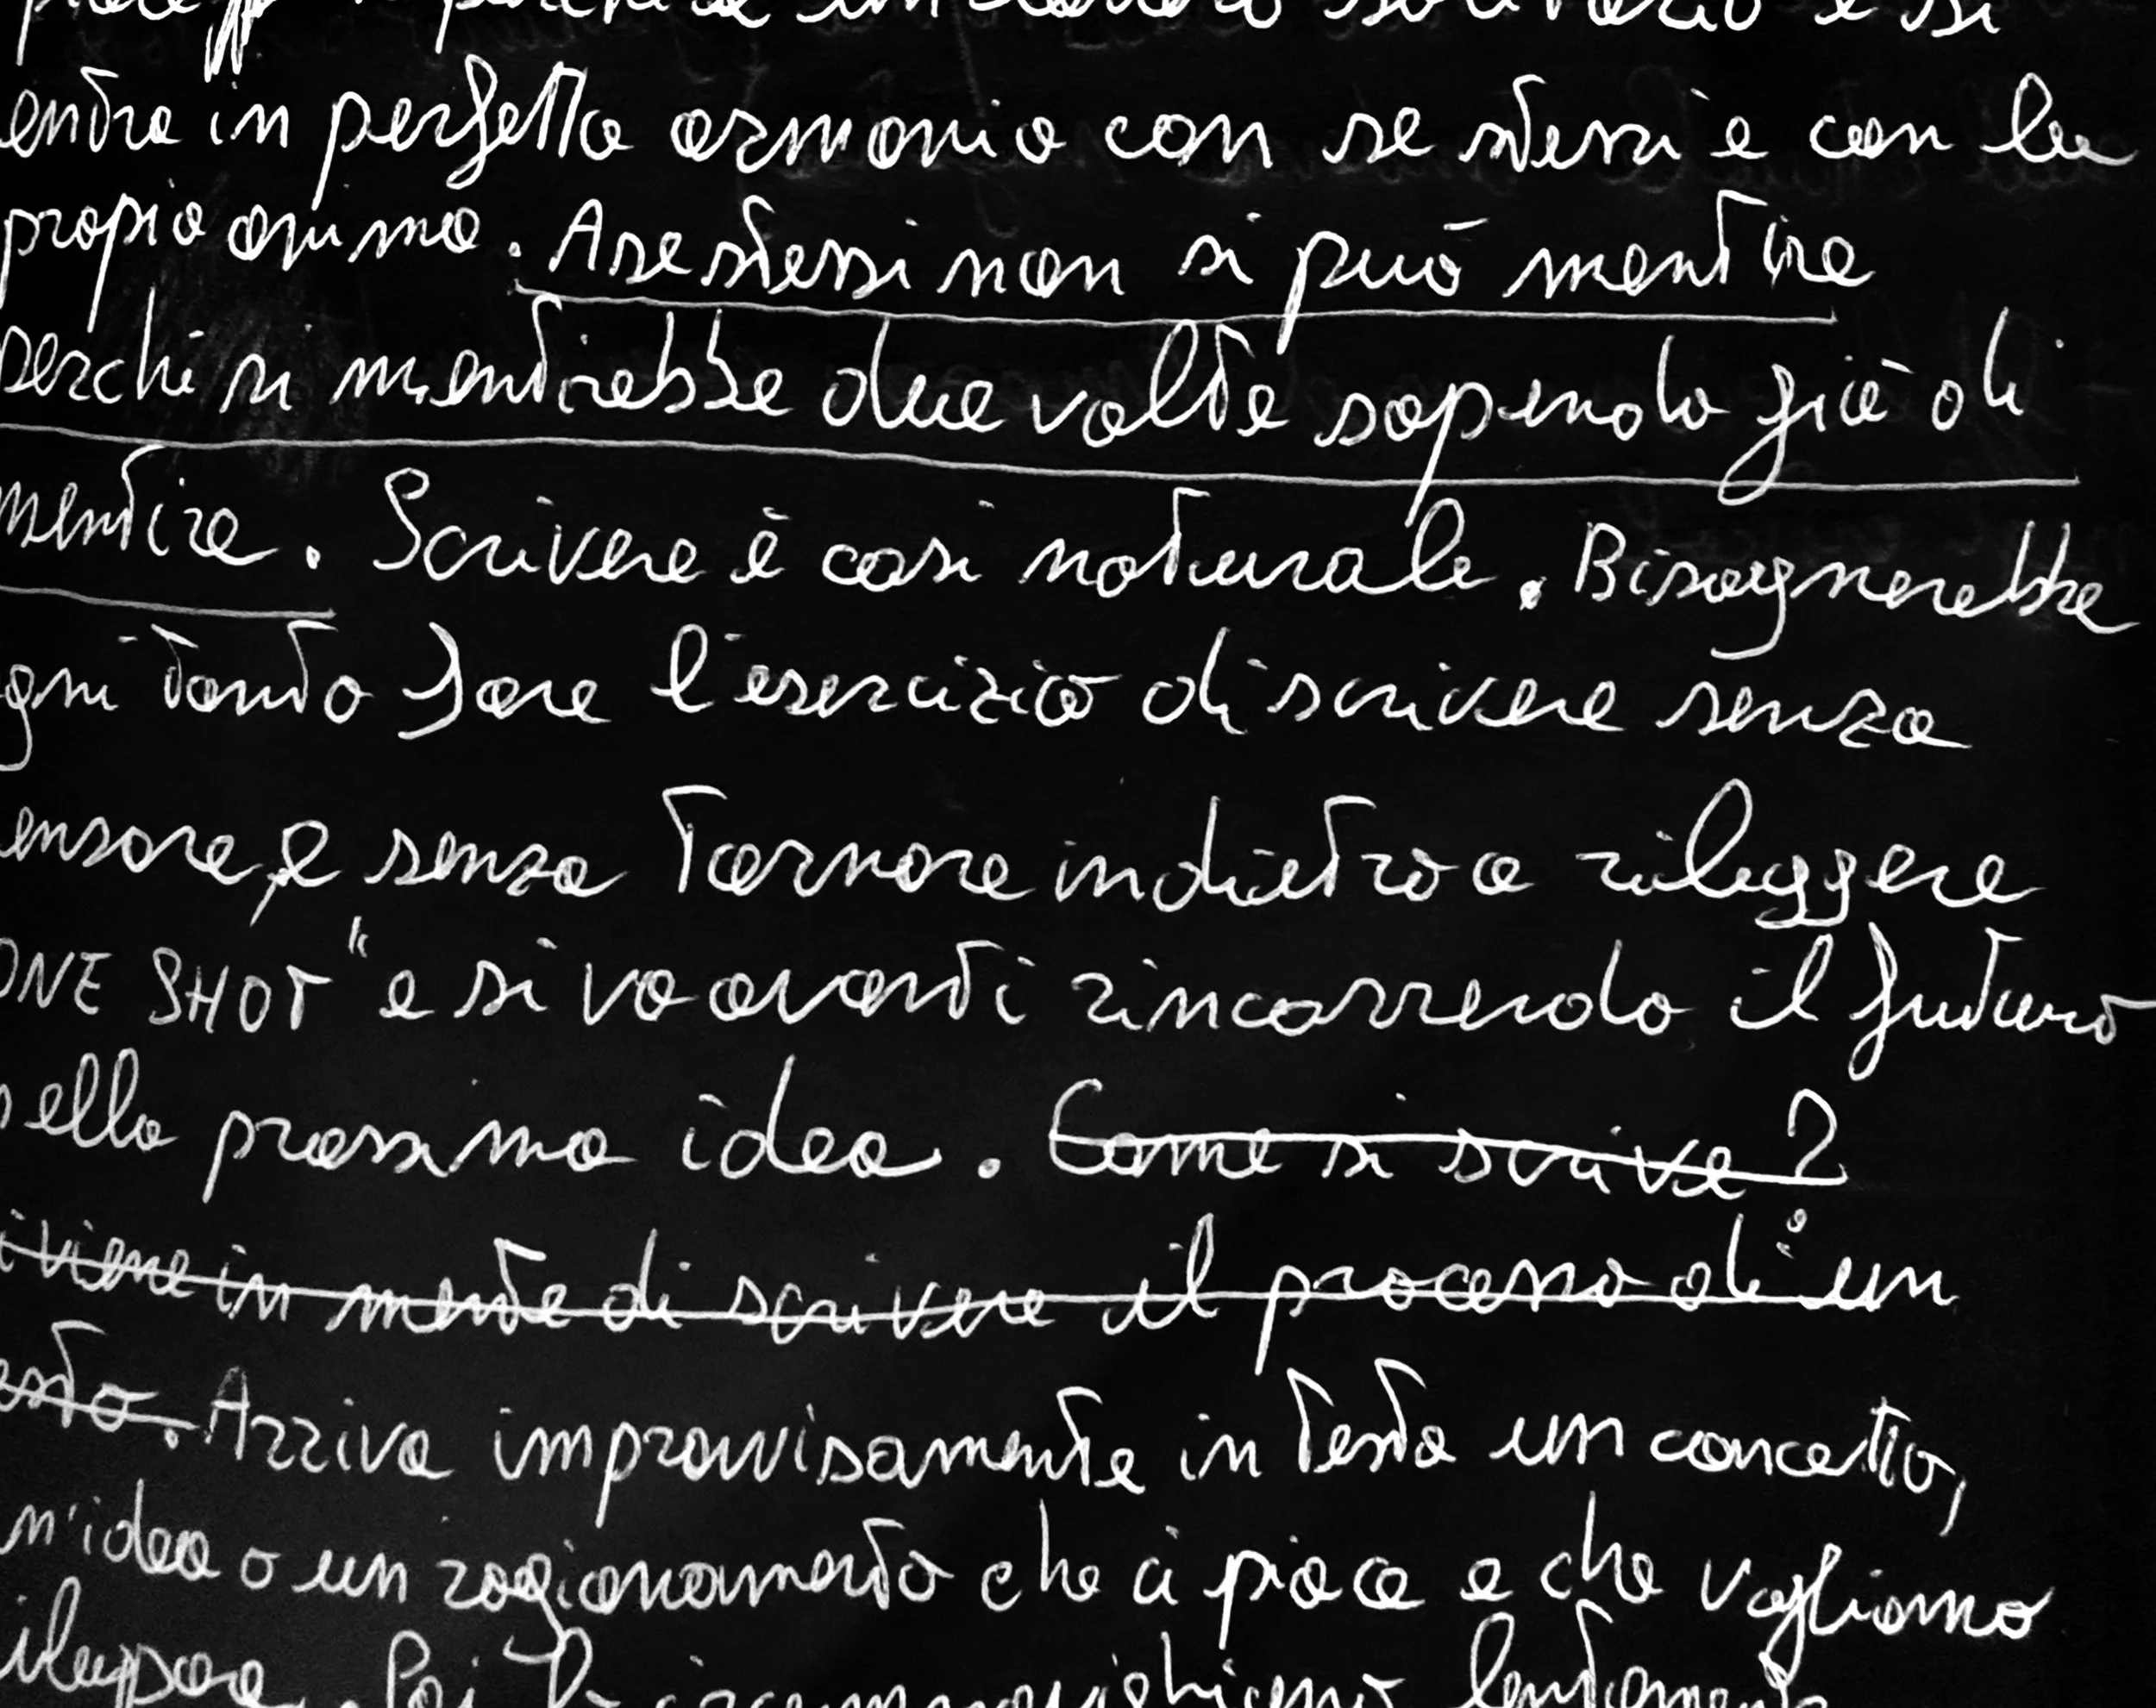 solitario e si
entra in perfetta armonia con se stessi e con la
propia anima. A se stessi non si può mentire
perchè si mentirebbe due volte sapendo già di
mentire. Scrivere è così naturale. Bisognerebbe
ogni tanto fare l'esercizio di scrivere senza
censore, e senza tornare indietro a rileggere
ONE SHOT" e si va avanti rincorrendo il futuro
nella prossima idea. Come si scrive?
viene in mente di scrivere il processo di un
testo. Arriva improvvisamente in testa un concetto,
un'idea o un ragionamento che ci piace e che vogliamo
sviluppare. Poi lentamente